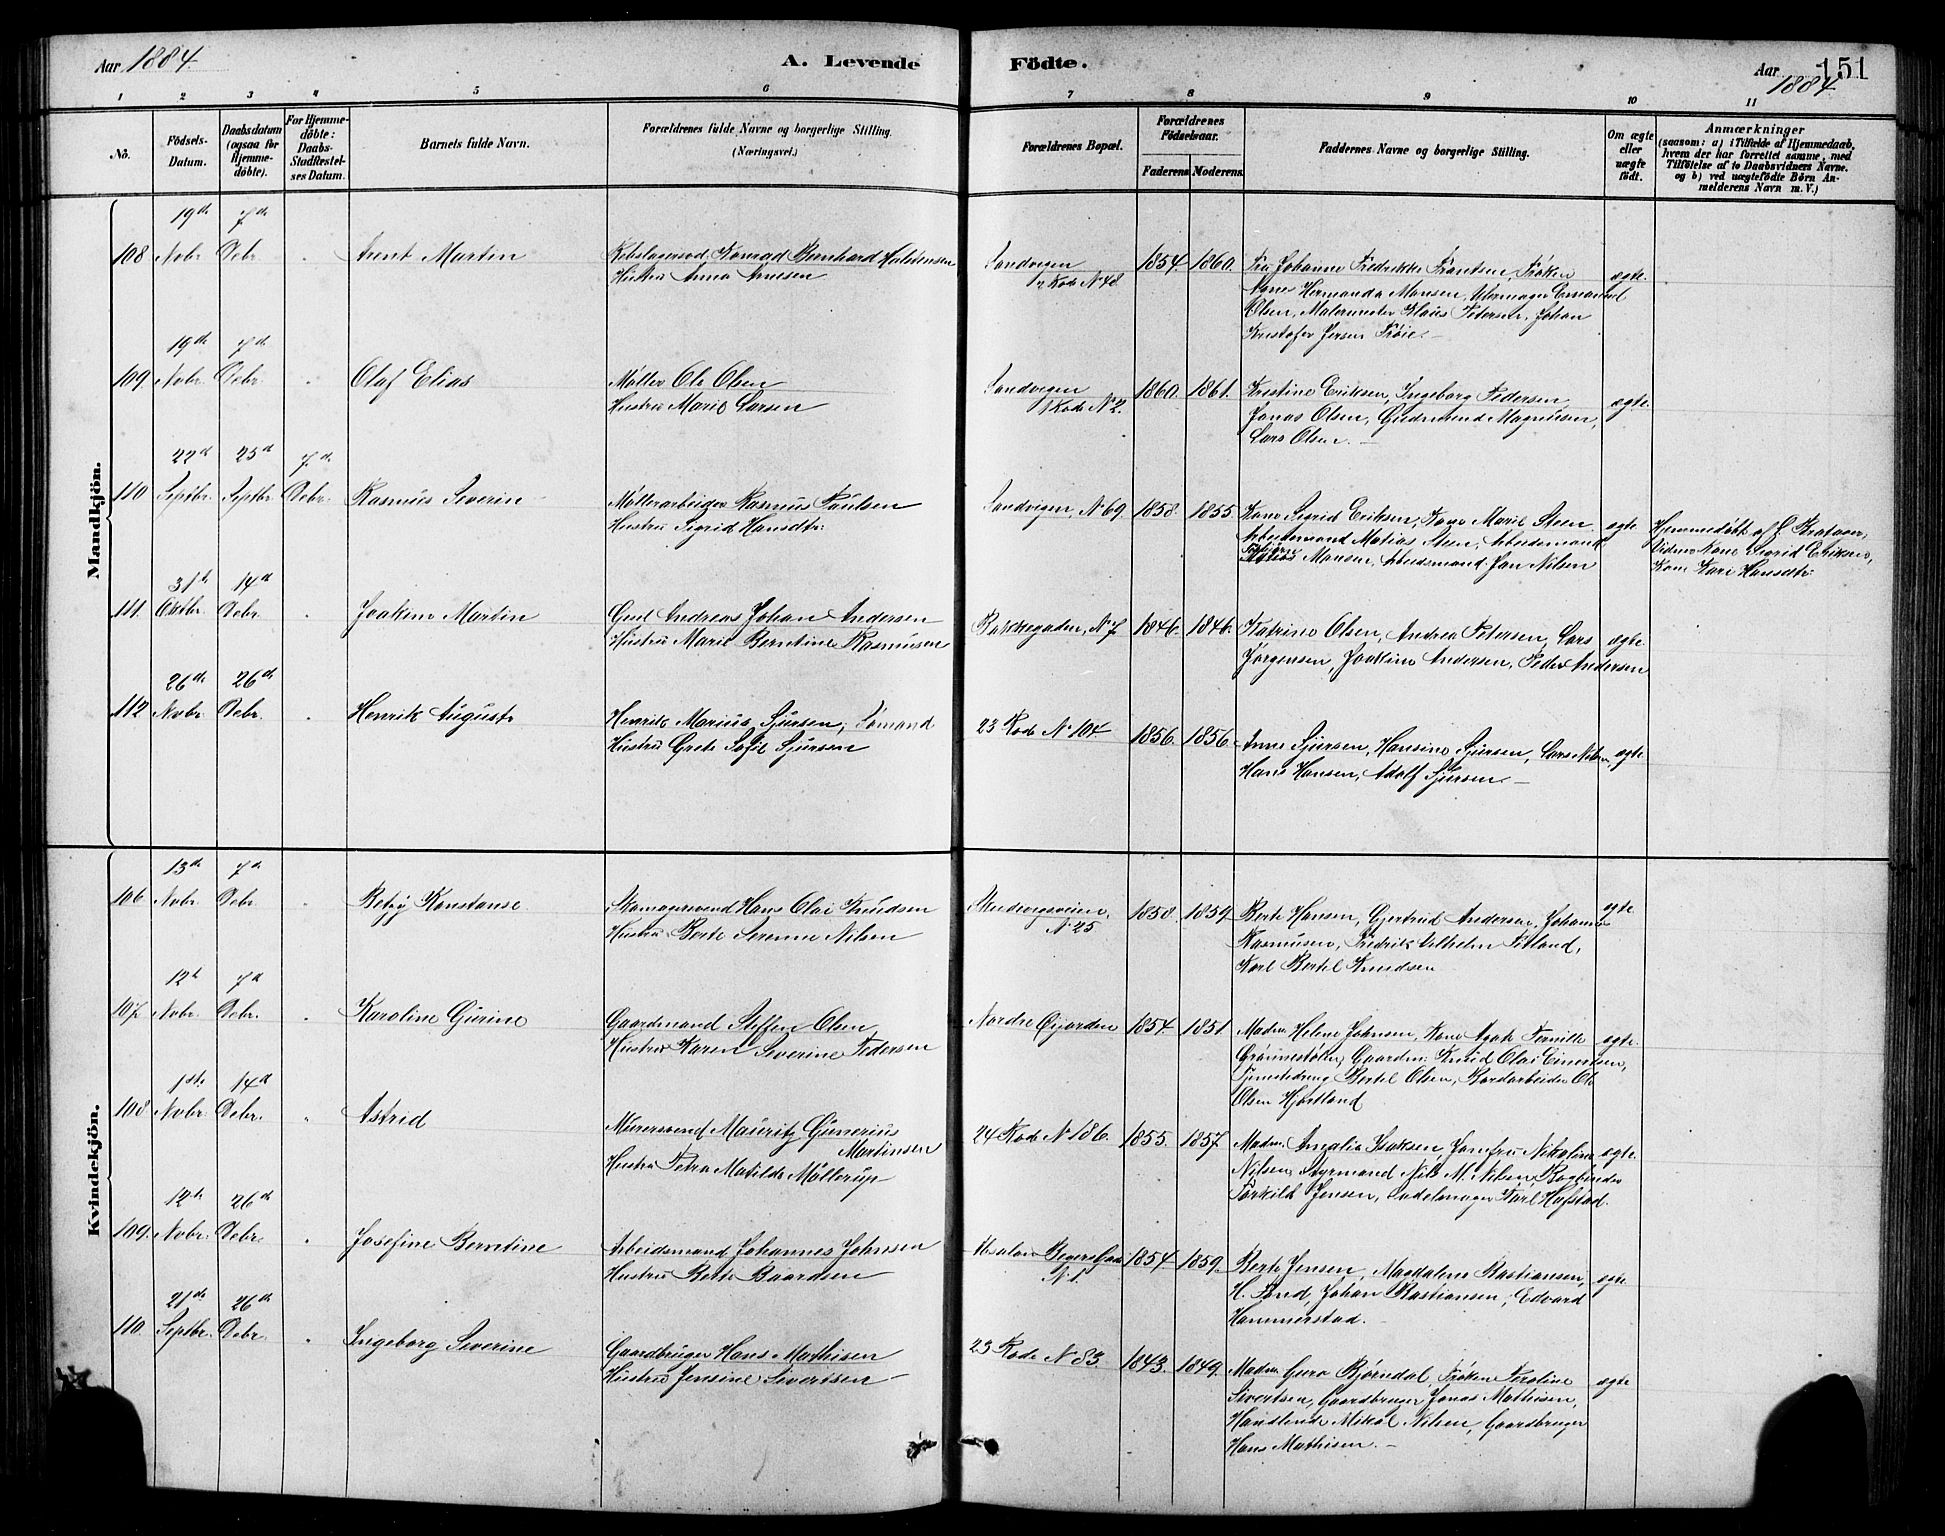 Aar 1884.
A. Levende
Födte.
Aar 1884
151
1 2 3 4 5 6
7 8 9 10 11
No.
Födsels-Datum.
Daabsdatum (ogsaa for Hjemme-döbte).
For Hjemme-döbte: Daabs-Stadfæstel-ses Datum.
Barnets fulde Navn.
Forældrenes fulde Navne og borgerlige Stilling.
(Næringsvei.)
Forældrenes Bopæl.
Forældrenes Födselsaar.
Faderens. Moderens.
Faddernes Navne og borgerlige Stilling.
Om ægte eller uægte födt.
Anmærkninger
(saasom: a) i Tilfælde af Hjemmedaab,
hvem der har forrettet samme, med
Tilföielse af to Daabsvidners Navne.
og b) ved uægtefödte Börn An-
melderens Navn m. V.)
Mandkjön.
19de 7d
108 Novbr. Debr. Arent Martin
Rebslagersvd. Konrad Bernhard Halstensen
Hustru Anna Arnesen
Sandvigen
Rode No 48
1854. 1860.
Fru Johanne Fredrikke Frantsen, Frøken
Agnes Hermanda Monsen, Uhrmager Emanuel
Olsen, Malermester Klaus Petersen, Johan
Kristofer Jersin Frøie.
ægte.
19de 7d
109. Novbr. Debr. Olaf Elias
Møller Ole Olsen
Hustru Marie Larsen
Sandvigen
1 Rode No 2.
1860. 1861.
Kristine Eriksen, Ingeborg Pedersen
Jonas Olsen, Gudmund Magnusen,
Lars Olsen.
ægte.
22d 25d 7d
110 Septbr. Septbr. Debr. Rasmus Severin
Møllerarbeider Rasmus Paulsen
Hustru Sigrid Hansdtr.
Sandvigen, No 69
1858. 1855.
Kone Sigrid Eriksen, Kone Marie Steen
Arbeidsmand Matias Steen, Arbeidsmand
Monsen, Arbeidsmand Jan Nilsen
ægte
Hjemmedøbt af
Vidner Kone Sigrid Eriksen,
Kone Kari Hansdtr.
31te 14d
111. Oktbr. Debr. Joakim Martin
Andreas Johan Andersen
Hustru Marie Berntine Rasmusen
Bakkegaden, No 7
1846. 1846.
Katrine Olsen, Andrea Petersen, Lars
Jørgensen, Joakim Andersen, Peder Andersen
ægte
26de 26de
112 Novbr. Debr. Henrik August
Henrik Marius Sjursen, Sømand
Hustru Grete Sofie Sjursen
23 Rode No 104.
1856. 1856.
Anne Sjursen, Hansine Sjursen, Lars Nilsen,
Hans Hansen, Adolf Sjursen.
ægte
Kvindekjön.
13de 7d
106. Novbr. Debr. Betzy Konstanse
Skomagersvend Hans Olai Knudsen
Hustru Berte Serenne Nilsen
No 25
1858. 1859
Berte Hansen, Gjertrud Andersen, Johannes
Rasmusen, Fredrik Vilhelm Fitland,
Karl Bertel Knudsen
ægte
12te 7d
107. Novbr. Debr. Karoline Gurine
Gaardmand Steffen Olsen
Hustru Karen Severine Pedersen
Nordre Øijorden
1854. 1851
Madm. Helene Johnsen, Kone Agate Pernille
Grønnestølen, Gaardm. Knud Olai Einertsen,
Tjenestedreng Bertel Olsen, Bordarbeider Ole
Olsen Hjortland
ægte.
1ste 14d
108. Novbr. Debr. Astrid
Murersvend Mauritz Gunerius
Martinsen
Hustru Petra Matilde Møllerup
24 Rode No 186.
1855. 1857.
Madm. Amalia Isaksen, Jomfru Nikoline
Nilsen, Styrmand Nils M. Nilsen, Bogbinder
Torkild Jensen, Sadelmager Karl Hofstad.
ægte.
12te 26de
109. Novbr. Debr. Josefine Berntine
Arbeidsmand Johannes Johnsen
Hustru Berte Baardsen
Absalon Beyers Gade
No 1.
1854. 1859.
Berte Jensen, Magdalene Bastiansen,
H. Sand, Johan Bastiansen, Edvard
Hammerstad.
ægte
21de 26de
110. Septbr. Debr. Ingeborg Severine
Gaardbruger Hans Mathisen
Hustru Jensine Sivertsen
23 Rode No 83.
1843. 1849.
Madm. Guro Bjørndal, Frøken Peroline
Sivertsen, Gaardbruger Jonas Mathisen,
Handlende Mikal Nilsen, Gaardbruger
Hans Mathisen.
ægte